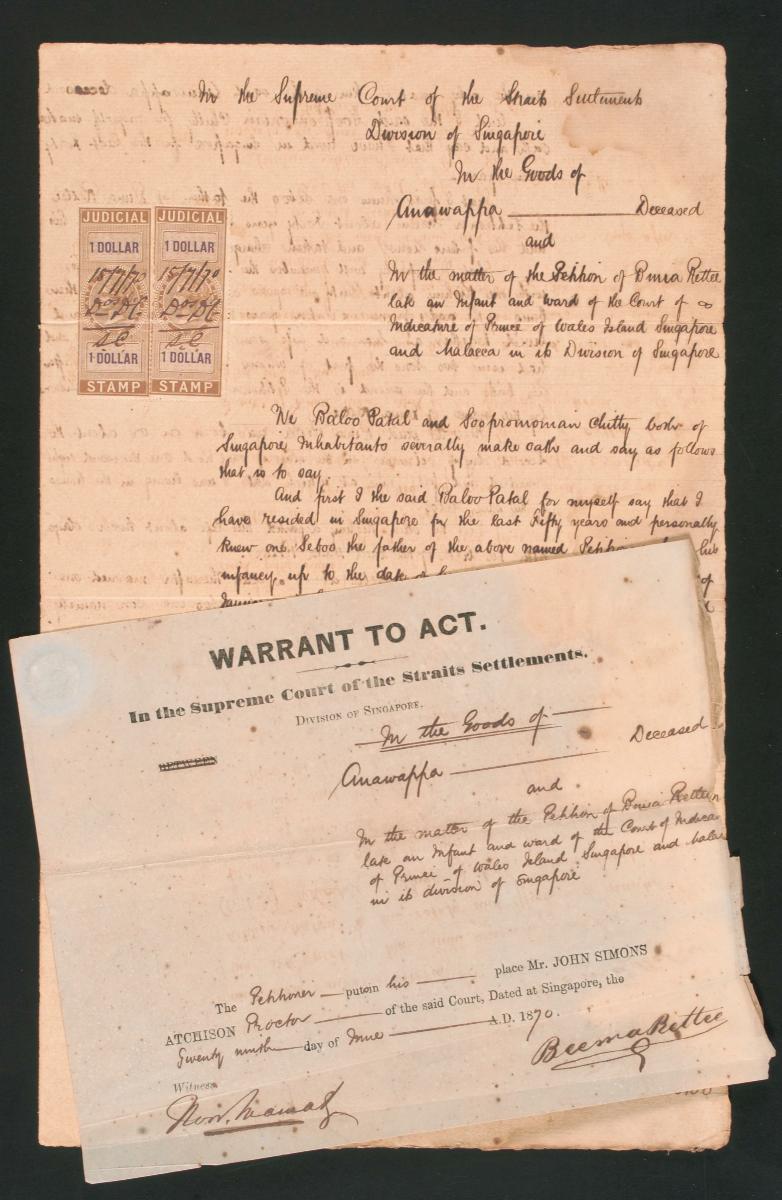 In the Supreme Court of the Straits Settlements
Division of Singapore
In the Goods of
Anawappa Deceased
and
In the matter of the Petition of Rettee
late an Infant and ward of the Court of
Judicature of Prince of Wales Island Singapore
and Malacca in its Division of Singapore
JUDICIAL JUDICIAL
1 DOLLAR 1 DOLLAR
15/7/70 15/7/70
1 DOLLAR 1 DOLLAR
STAMP STAMP
We Baloo Patal and Soopromonian Chitty both of
Singapore Inhabitants severally make oath and say as follows
that is to say.
And first I the said Baloo Patal for myself say that I
have resided in Singapore for the last Fifty years and personally
knew one Seboo the father of the above named
infancy up to the date of
WARRANT TO ACT.
In the Supreme Court of the Straits Settlements.
DIVISION OF SINGAPORE.
BETWEEN
In the Goods of
Anawappa Deceased
and
In the matter of the Petition of Rettee
late an Infant and ward of the Court of
of Prince of Wales Island Singapore and
in its division of Singapore
The Petitioner puts in his place Mr. JOHN SIMONS
ATCHISON Proctor of the said Court, Dated at Singapore, the
Twenty ninth day of June A.D. 1870.
Beema Rettee
Witness